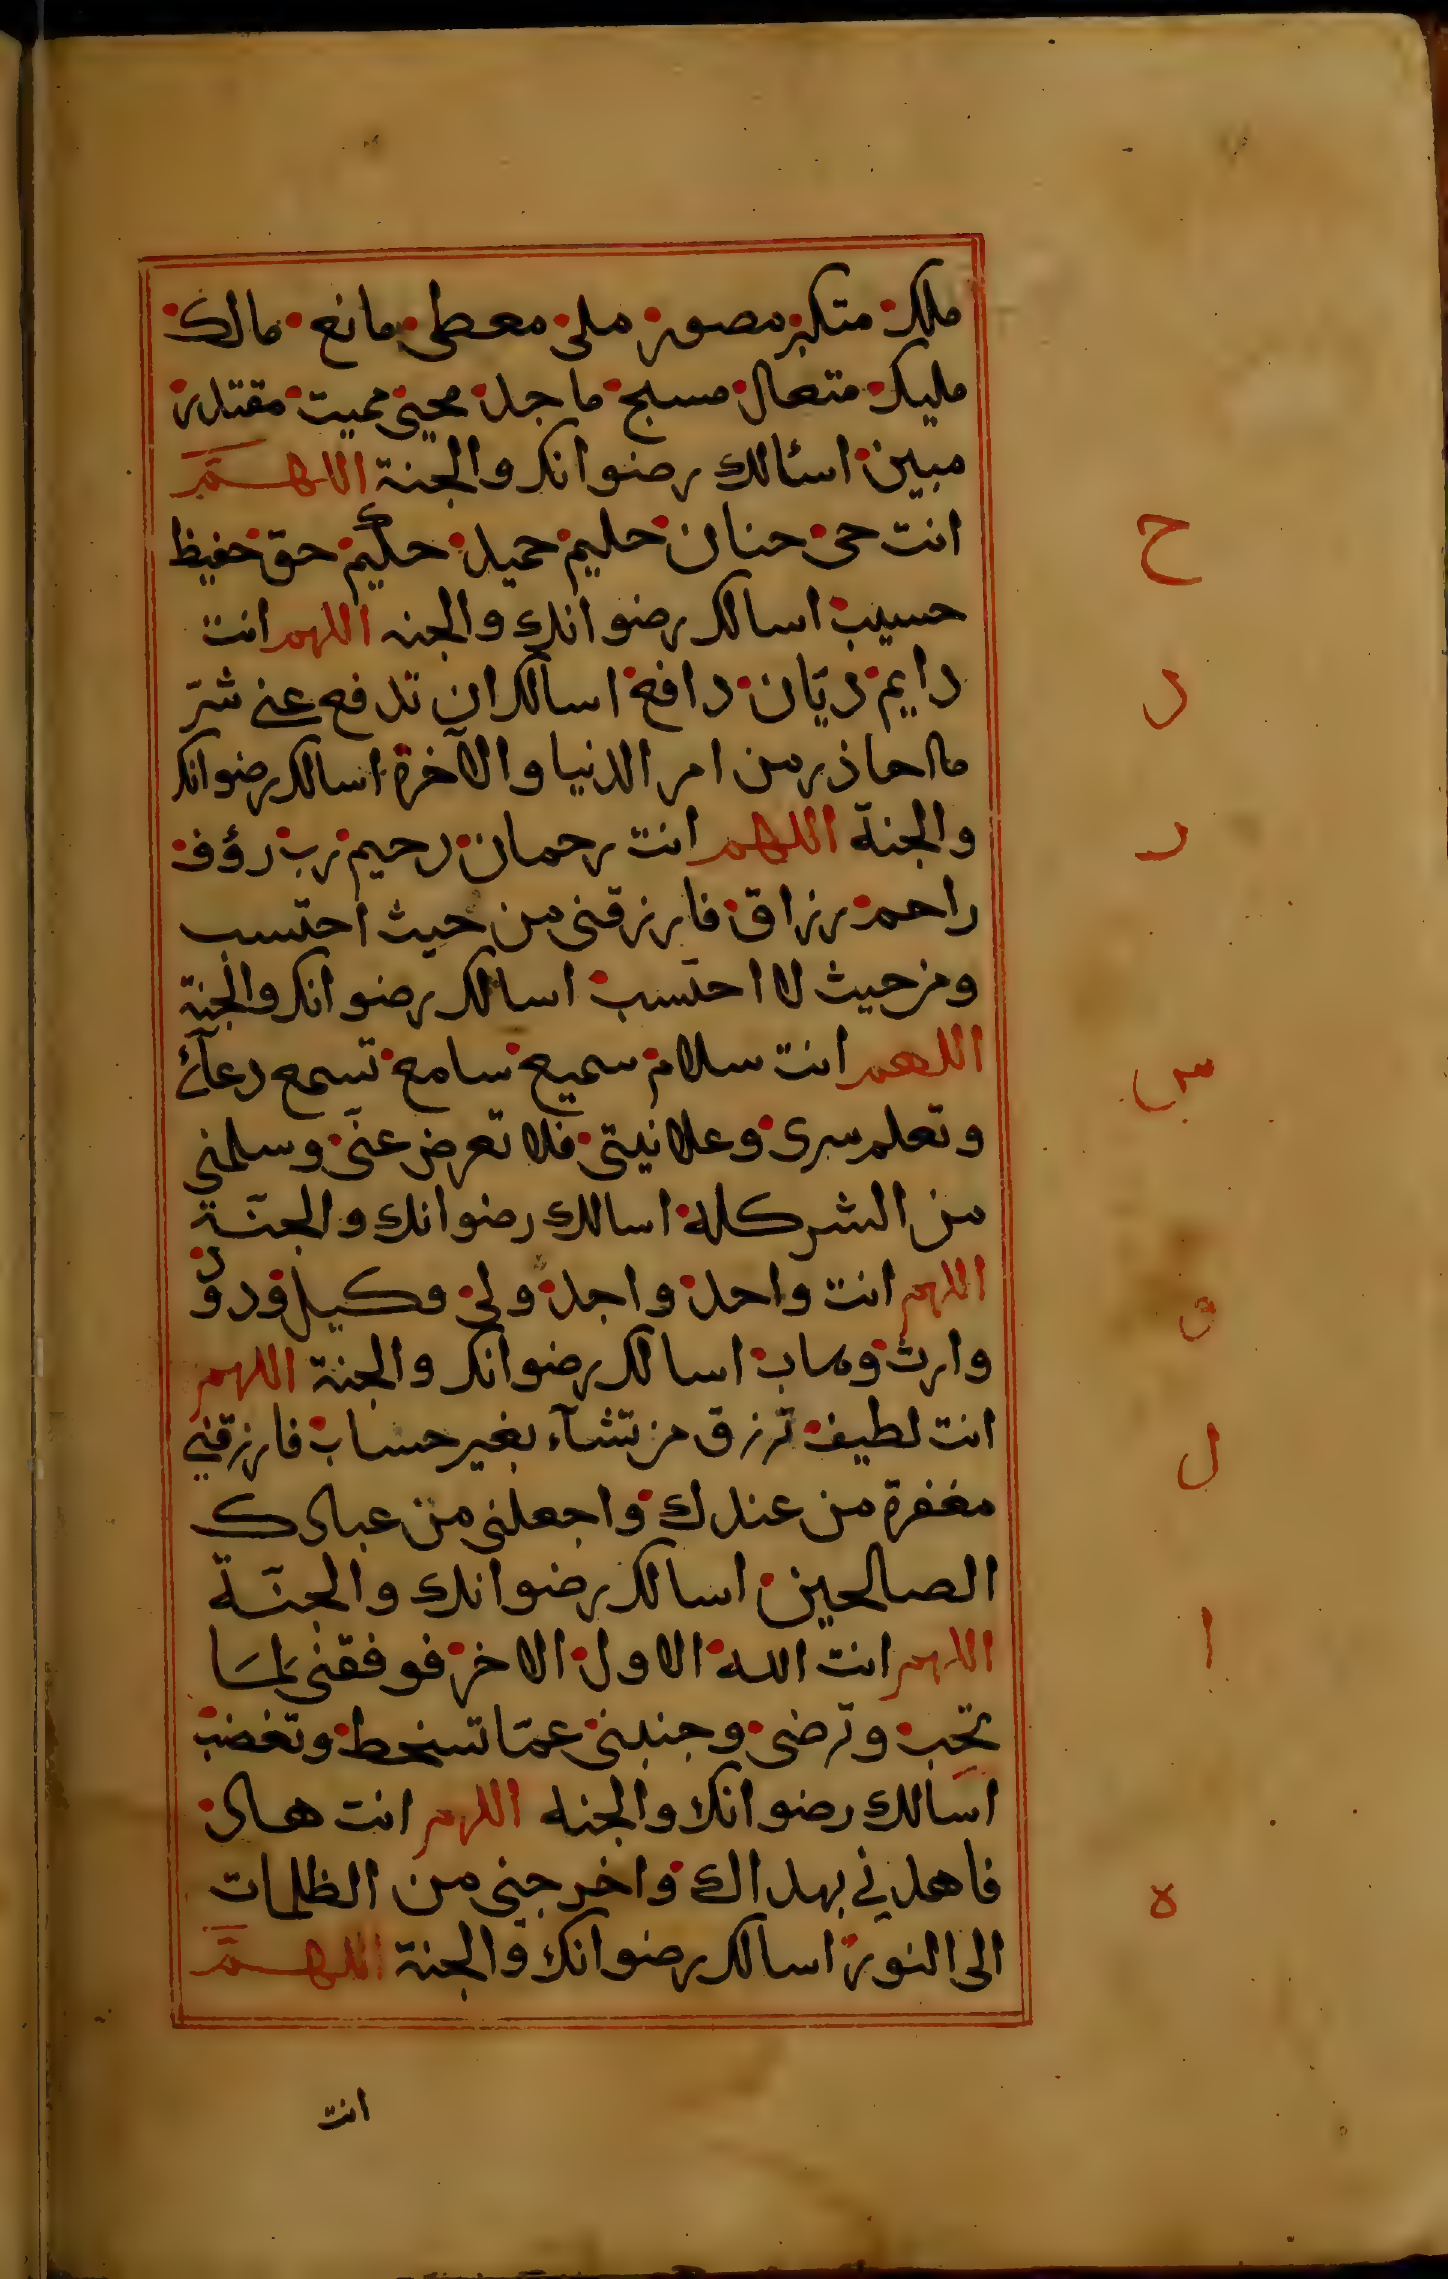 ملك متكبر مصور ملي معطي مانع مالك
مليك متعال مسبح ماجد محيي مميت مقتدر
مبين اسئالك رضوانك والجنة اللهم
انت حي حنان حليم حميد حكيم حق حفيظ
ح
حسيب اسالك رضوانك والجنه اللهم انت
دايم ديّان دافع اسألك ان تدفع عني شرّ
د
ما احاذر من امر الدنيا والآخرة اسالك رضوانك
والجنة اللهم انت رحمان رحيم رب رؤف
ر
راحم رزاق فارزقني من حيث احتسب
ومن حيث لا احتسب اسالك رضوانك والجنة
اللهم انت سلام سميع سامع تسمع دعائ
س
وتعلم سرى وعلانيتي فلا تعرض عني وسلمني
من الشر كله اسالك رضوانك والجنّة
اللهم انت واحد واجد ولي وكيل ودود
وارث وهاب اسالك رضوانك والجنة اللهم
انت لطيف ترزق من تشآء بغير حساب فارزقني
ل
مغفرة من عندك واجعلني من عبادك
الصالحين اسالك رضوانك والجنّة
اللهم انت الله الاول الاخر فوفقني لما
ا
تحب وترضى وجنبني عمّا تسخط وتغضب
اسالك رضوانك والجنه اللهم انت هادى
فاهدني بهداك واخرجني من الظلمات
ه
الى النور اسالك رضوانك والجنة اللهم
انت